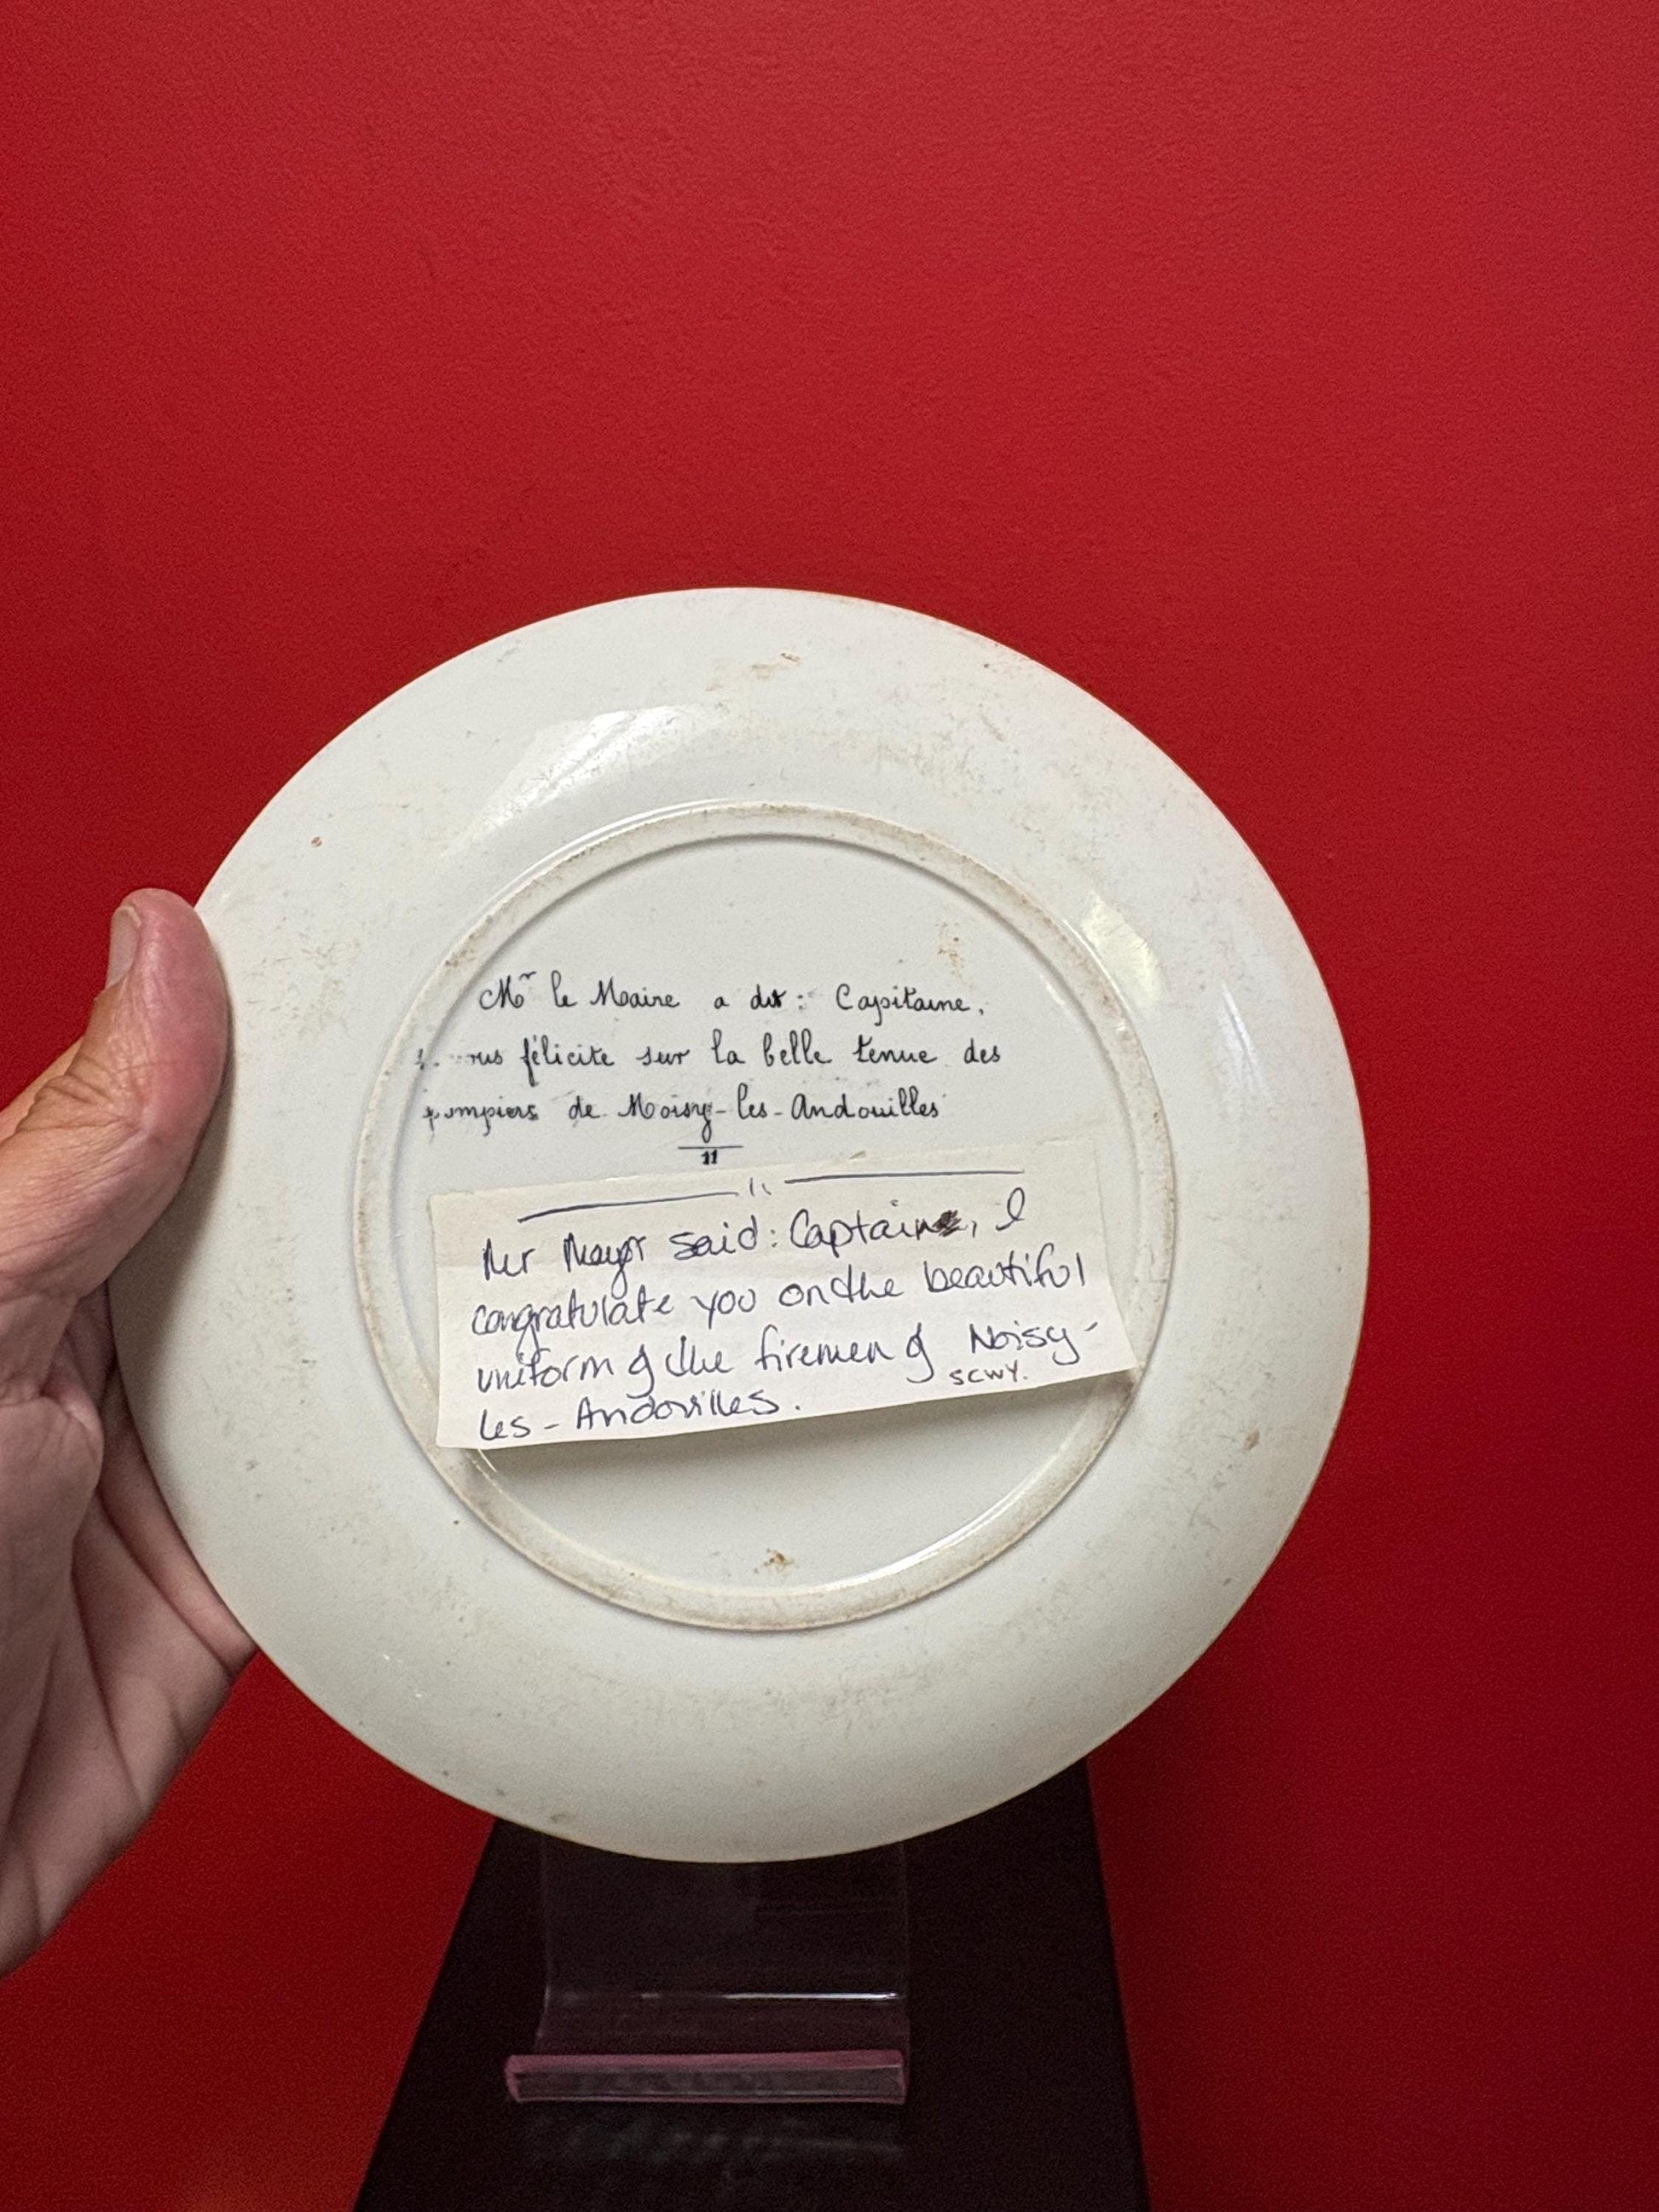 Mr le Maire a dit : Capitaine,
félicite sur la belle tenue des
pompiers de Noisy-les-Andouilles
11
Mr Mayor said: Captain, I
congratulate you on the beautiful
uniform of the firemen of Noisy-
les-Andouilles.
SCWY.